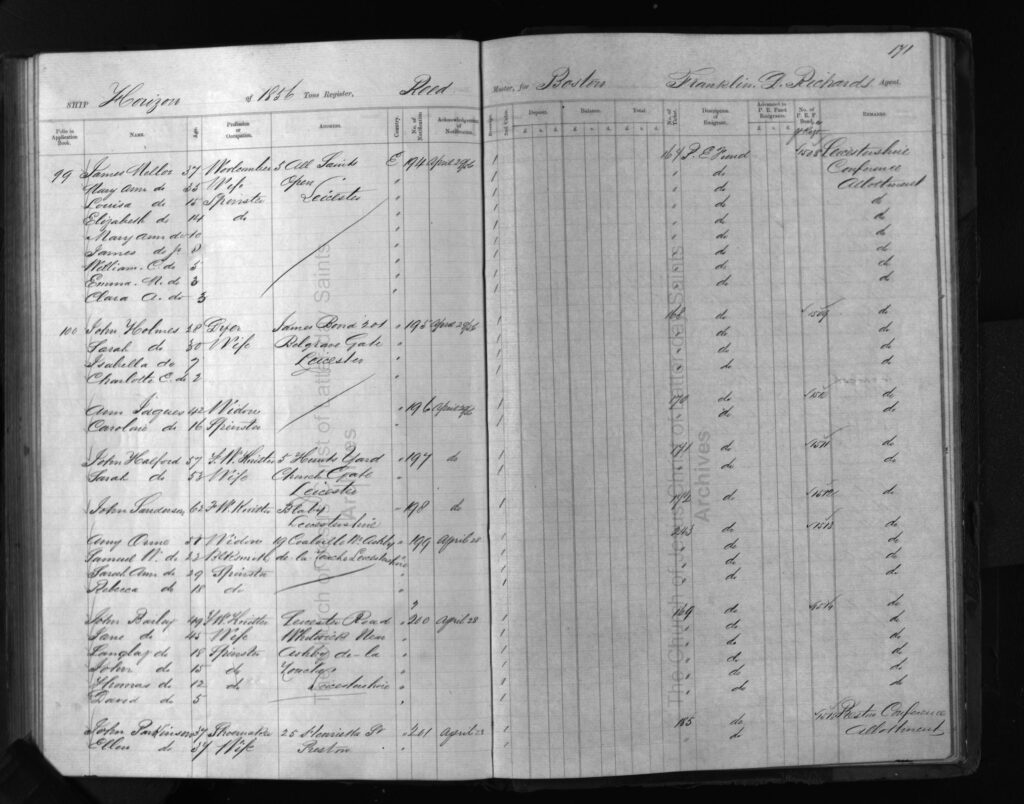 171
SHIP Horizon of 1856 Tons Register, Reed Master, for Boston Franklin D. Richards Agent.
Folio in Application Book. NAME. Age. Profession or Occupation. ADDRESS. Country. No. of Notification Acknowledgment of Notification. Deposit. Balance. Total. No. of Ticket. Description of Emigrant. Advanced to P. E. Fund Emigrants. No. of P. E. F. Bond. REMARKS.
99 James Mellor 37 5 All Saints E 194 April 29/56 1 167 P. E. Fund 1508 Leicestershire
Mary Ann do 35 Wife Open " 1 " do Conference
Louisa do 15 Spinster Leicester " 1 " do Allotment
Elizabeth do 14 do " 1 " do do
Mary Ann do 10 " 1 " do do
James do jr 8 " 1 " do do
William C. do 5 " 1 " do do
Emma M. do 3 " 1 " do do
Clara A. do 3 " 1 " do do
100 John Holmes 28 Dyer James Bond 201 " 195 April 29/56 1 168 do 1509 do
Sarah do 30 Wife Belgrave Gate " 1 " do do
Isabella do 7 Leicester " 1 " do do
Charlotte E. do 2 " 1 " do do
Ann Jaques 42 Widow " 196 April 29/56 1 170 do 1510 do
Caroline do 16 Spinster " 1 " do do
John Halford 57 F. W. Knitter 5 Yard " 197 do 1 171 do 1511 do
Sarah do 53 Wife Church Gate " 1 " do do
Leicester
John Sanderson 62 F. W. Knitter Blaby " 198 do 1 172 do 1512 do
Leicestershire
Amy Orme 58 Widow Coalville Nr. Ashby " 199 April 28 1 243 do 1513 do
Samuel W. do 23 Blksmith de la Zouche Leicestershire " 1 " do do
Sarah Ann do 29 Spinster " 1 " do do
Rebecca do 18 do " 1 " do do
John Bailey 49 F. W. Knitter Leicester Road " 200 April 28 1 169 do 1514 do
Jane do 45 Wife Whitwick Near " 1 " do do
Langley do 18 Spinster Ashby de-la " 1 " do do
John do 15 do Zouche " 1 " do do
Thomas do 12 do Leicestershire " 1 " do do
David do 5 " 1 " do do
John Parkinson 37 Shoemaker 25 Henrietta St " 201 April 23 1 185 do 1515 Preston Conference
Ellen do 37 Wife Preston " 1 " do Allotment
The Church of Jesus Christ of Latter-day Saints
Archives
The Church of Jesus Christ of Latter-day Saints
Archives